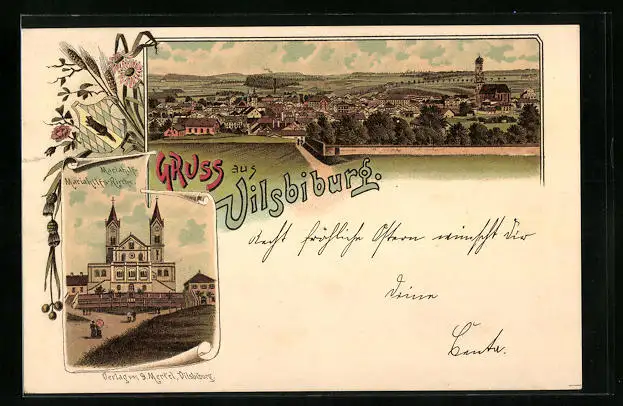 Gruss aus
Vilsbiburg.
Mariahilf-
Mariahilfs-Kirche
Recht fröhliche Ostern wünscht Dir
Deine
Centa.
Verlag von G. Merkel, Vilsbiburg.